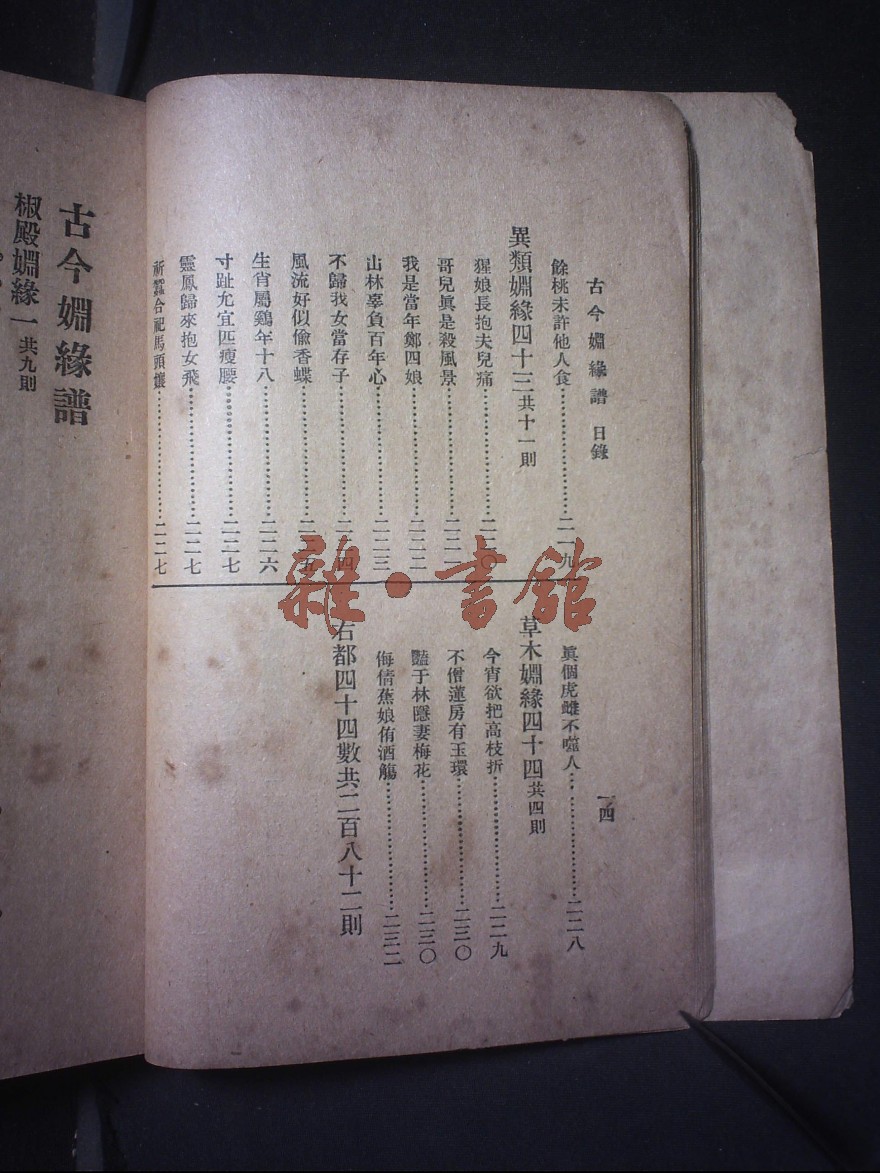 古今婣緣譜 目錄
一四
餘桃未許他人食…………二一九
異類婣緣四十三共十一則
猩娘長抱夫兒痛…………二二〇
哥兒眞是殺風景…………二二一
我是當年鄭四娘…………二二二
山林辜負百年心…………二二三
不歸我女當存子…………二二四
風流好似偷香蝶…………二二五
生肖屬鷄年十八…………二二六
寸趾尤宜匹瘦腰…………二二七
靈鳳歸來抱女飛…………二二七
祈蠶合祀馬頭孃…………二二七
眞個虎雌不噬人…………二二八
草木婣緣四十四共四則
今宵欲把高枝折…………二二九
不僧蓮房有玉環…………二三〇
豔于林隱妻梅花…………二三〇
侮倩蕉娘侑酒觴…………二三二
右都四十四數共二百八十二則
古今婣緣譜
椒殿婣緣一共九則
雜·書館